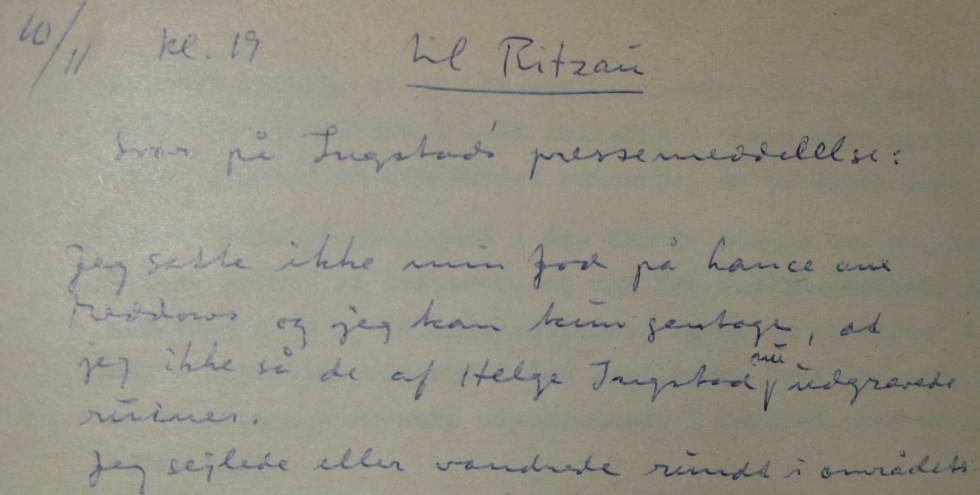 10/11 kl. 19 til Ritzau
Svar på Ingstad's pressemeddelelse:
Jeg satte ikke min fod på Lance aux
Meddows og jeg kan kun gentage, at
jeg ikke så de af Helge Ingstad nu udgravede
ruiner.
Jeg sejlede eller vandrede rundt i områdets